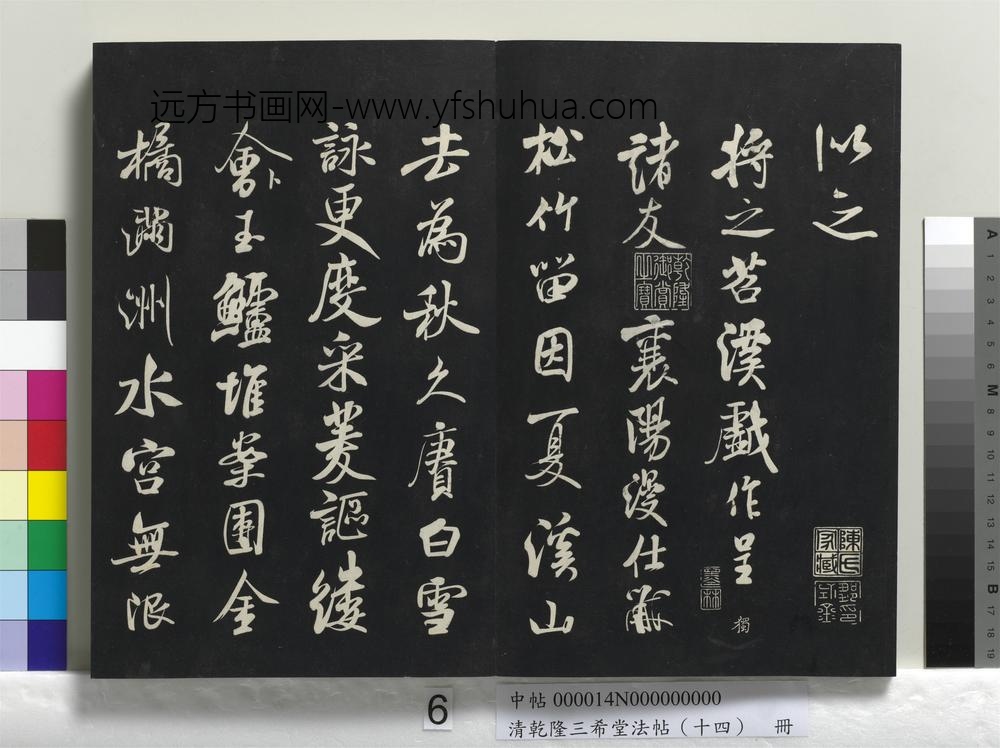 远方书画网-www.yfshuhua.com
以之
將之苕溪戲作呈
獨
諸友
乾隆御賞之寶
襄陽漫仕黻
松竹留因夏溪山
去為秋久賡白雪
詠更度采菱謳縷
會玉鱸堆案團金
橘滿洲水宮無限
6
中帖 000014N000000000
清乾隆三希堂法帖（十四） 冊
A 1 2 3 4 5 6 M 8 9 10 11 12 13 14 15 B 17 18 19